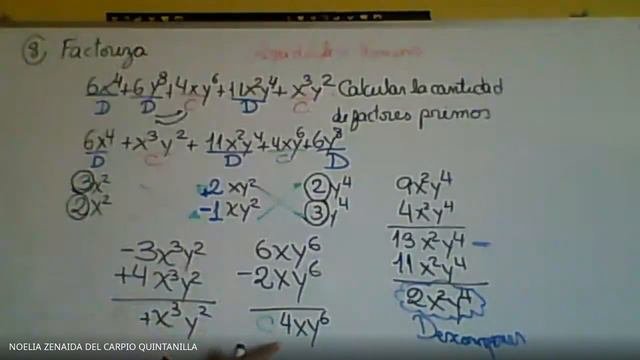 8 Factoriza
6x⁴+6y⁸+4xy⁶+11x²y⁴+x³y² Calcular la cantidad
D D C D C de factores primos
6x⁴+x³y²+11x²y⁴+4xy⁶+6y⁸
D C D C D
3x² +2xy² 2y⁴
2x² -1xy² 3y⁴
9x²y⁴
4x²y⁴
13x²y⁴ -
11x²y⁴
2x²y⁴
-3x³y² 6xy⁶
+4x³y² -2xy⁶
+x³y² C 4xy⁶
NOELIA ZENAIDA DEL CARPIO QUINTANILLA